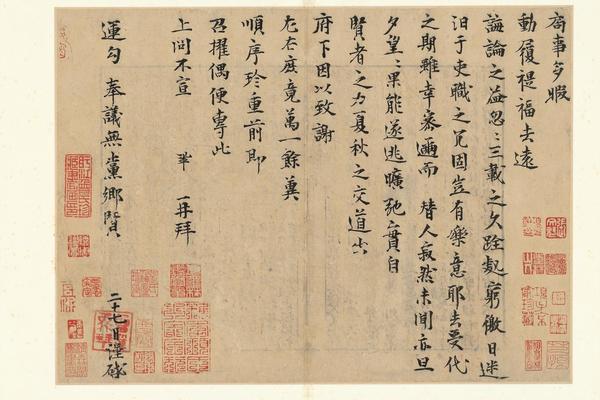 商事多暇
動履禔福去遠
誨論之益忽〻三載之久跧處窮徼日迷
汩于吏職之冗固豈有樂意耶去受代
之期雖幸密邇而 替人寂然未聞亦旦
夕望〻果能遂逃曠弛實自
賢者之力夏秋之交道出
府下因以致謝
左右庶竟萬一餘冀
順序珍重前即
召擢偶便專此
上問不宣 鞏 再拜
運勾 奉議無黨鄉賢
二十七日謹啟